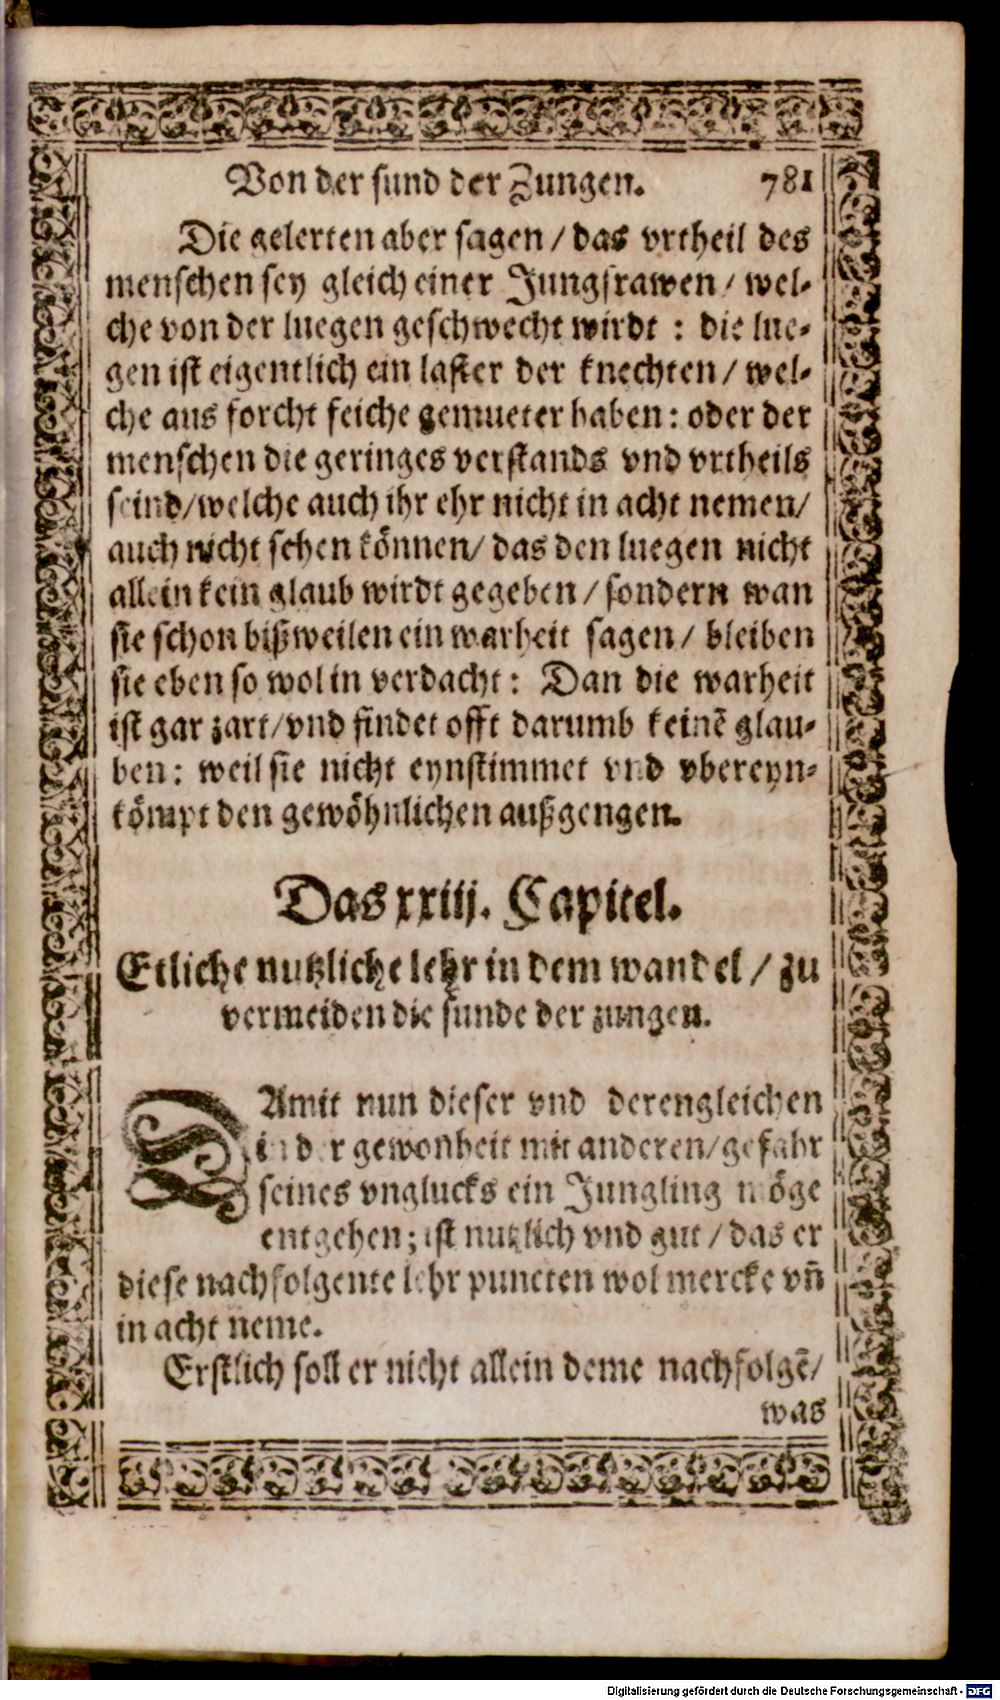 Von der sund der Zungen. 781
Die gelerten aber sagen / das vrtheil des
menschen sey gleich einer Jungfrawen / wel-
che von der luegen geschwecht wirdt : die lue-
gen ist eigentlich ein laster der knechten / wel-
che aus forcht feiche gemueter haben : oder der
menschen die geringes verstands vnd vrtheils
seind / welche auch ihr ehr nicht in acht nemen /
auch nicht sehen können / das den luegen nicht
allein kein glaub wirdt gegeben / sondern wan
sie schon bißweilen ein warheit sagen / bleiben
sie eben so wol in verdacht : Dan die warheit
ist gar zart / vnd findet offt darumb keinē glau-
ben : weil sie nicht eynstimmet vnd vbereyn-
kömpt den gewöhnlichen außgengen.
Das xxiij. Capitel.
Etliche nutzliche lehr in dem wandel / zu
vermeiden die sunde der zungen.
DAmit nun dieser vnd derengleichen
in der gewonheit mit anderen / gefahr
seines vnglucks ein Jungling möge
entgehen ; ist nutzlich vnd gut / das er
diese nachfolgente lehr puncten wol mercke vn̄
in acht neme.
Erstlich soll er nicht allein deme nachfolgē /
was
Digitalisierung gefördert durch die Deutsche Forschungsgemeinschaft - DFG